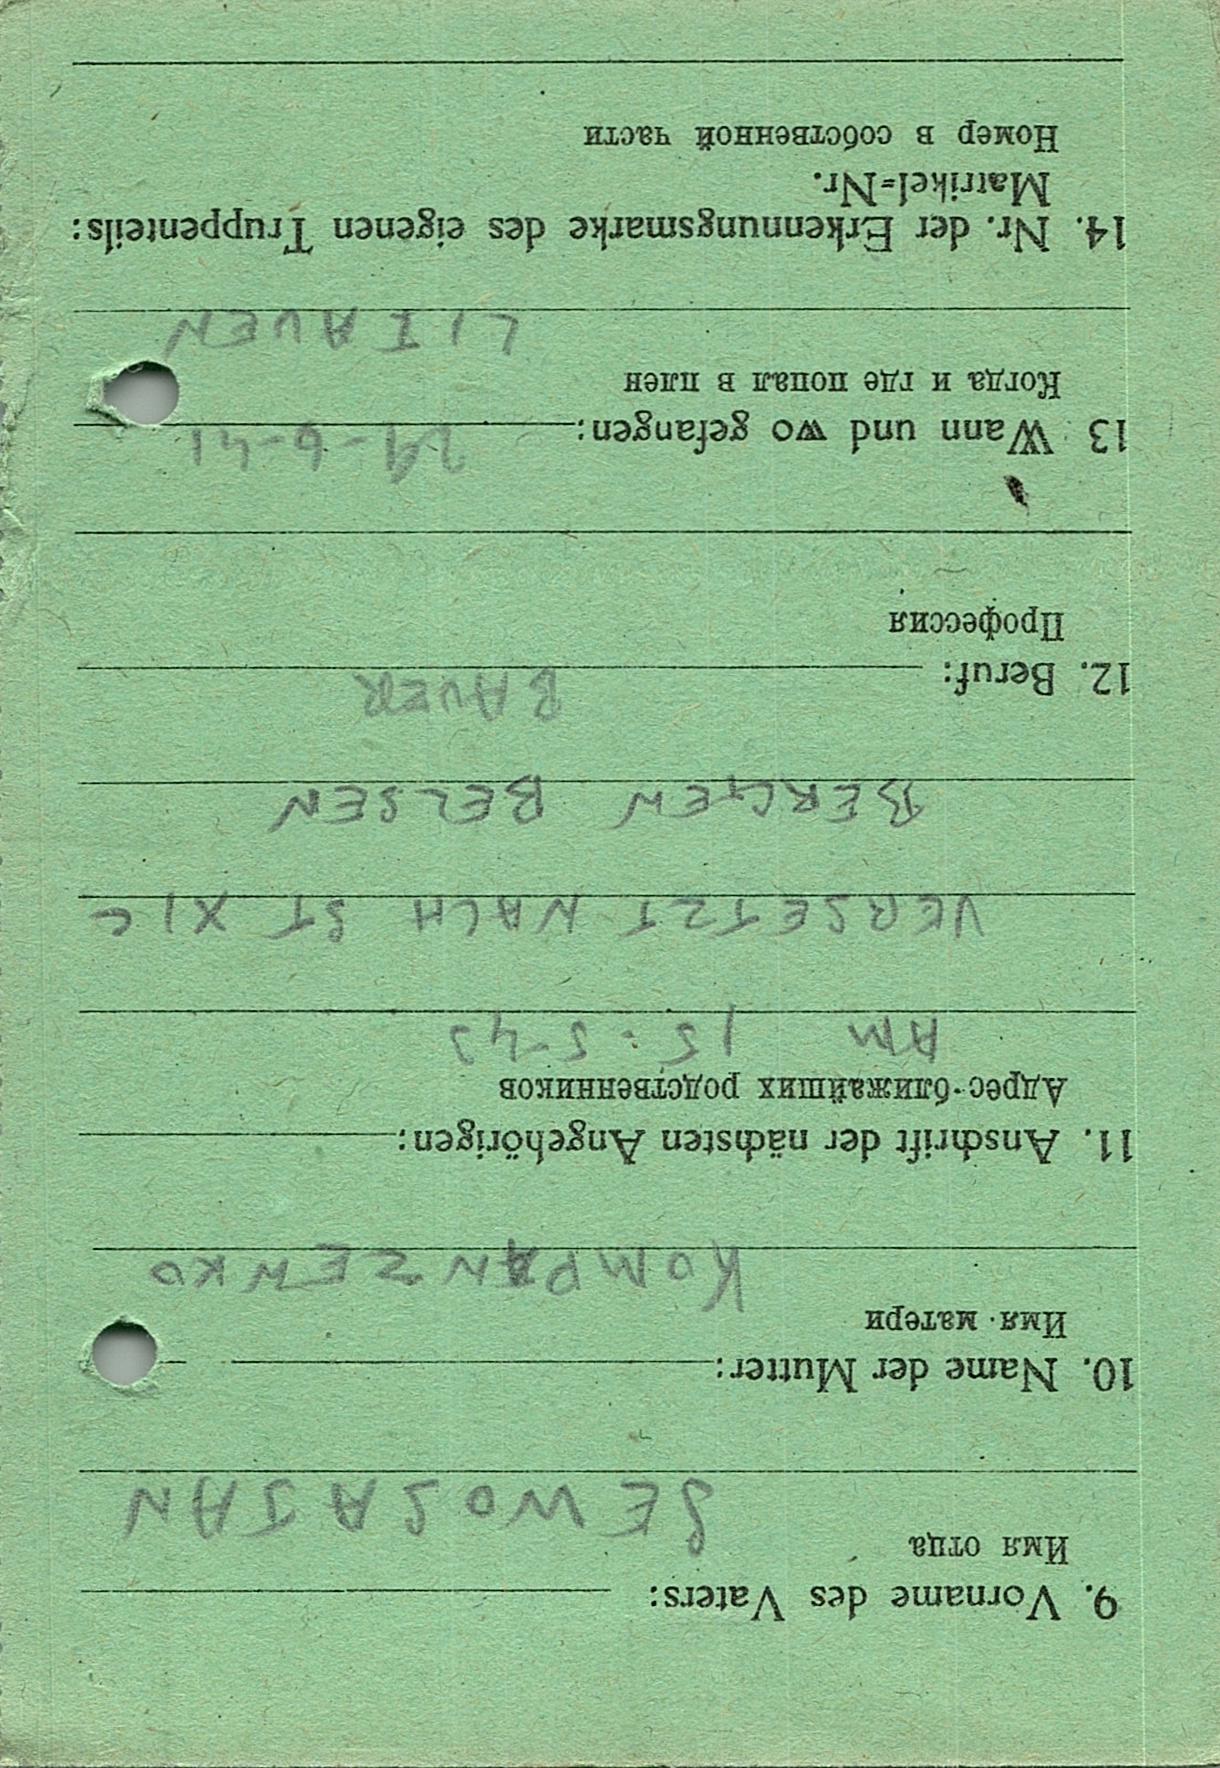 9. Vorname des Vaters:
Имя отца
SEWOSAJAN
10. Name der Mutter:
Имя матери
KOMPANZENKO
11. Anschrift der nächsten Angehörigen:
Адрес ближайших родственников
AM 15.5-43
VERSETZT NACH ST XI C
BERGEN BELSEN
12. Beruf:
BAUER
Профессия
13 Wann und wo gefangen: 29-6-41
Когда и где попал в плен
LITAUEN
14. Nr. der Erkennungsmarke des eigenen Truppenteils:
Matrikel=Nr.
Номер в собственной части